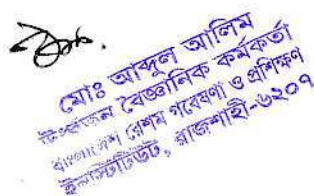 মোঃ আব্দুল আলিম
ঊর্ধ্বতন বৈজ্ঞানিক কর্মকর্তা
বাংলাদেশ রেশম গবেষণা ও প্রশিক্ষণ
ইনস্টিটিউট, রাজশাহী-৬২০৭